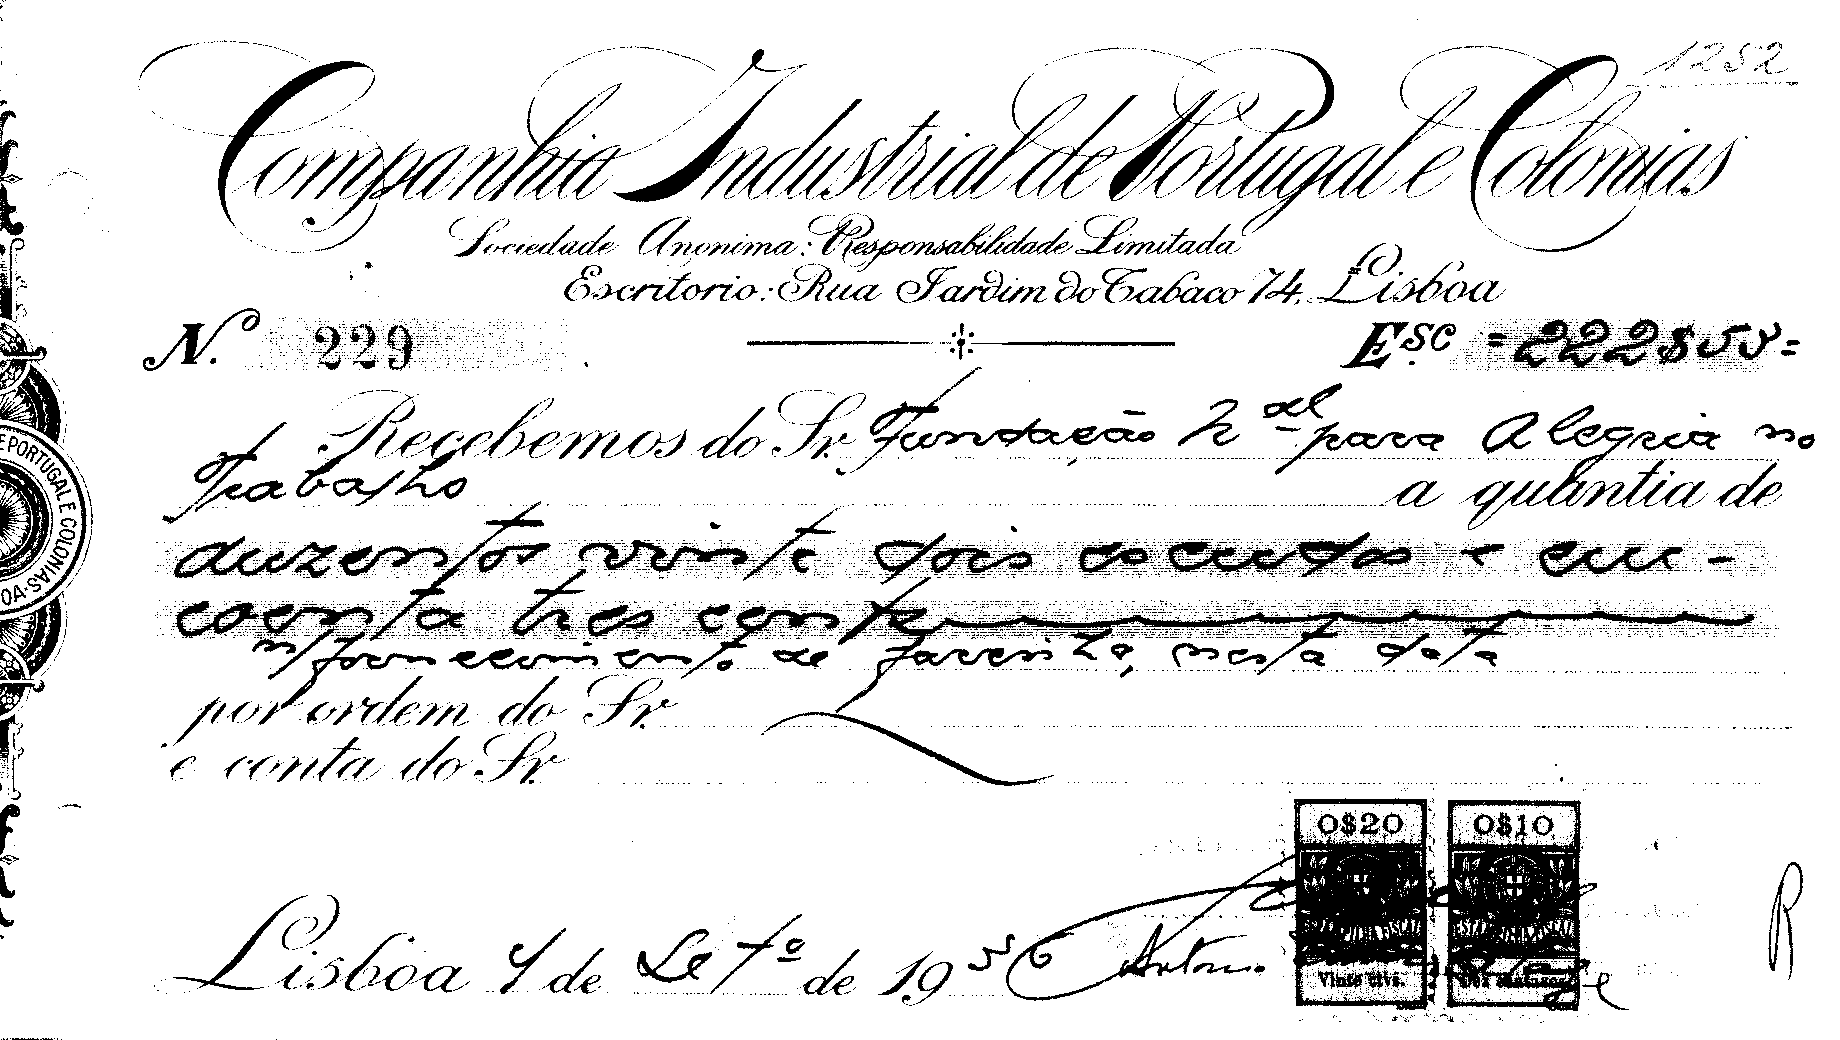 1252
Companhia Industrial de Portugal e Colonias
Sociedade Anonima: Responsabilidade Limitada
Escritorio: Rua Jardim do Tabaco 74, Lisboa
N.º 229 Esc. =222$53=
Recebemos do Sr. Fundação Nal para Alegria no
Trabalho a quantia de
duzentos vinte dois escudos e cin-
coenta tres cent
fornecimento de farinha, nesta data
por ordem do Sr.
e conta do Sr.
E PORTUGAL E COLONIAS·
0$20 0$10
Lisboa 4 de Setº de 1956 Antonio
Vinte ctvs.
R